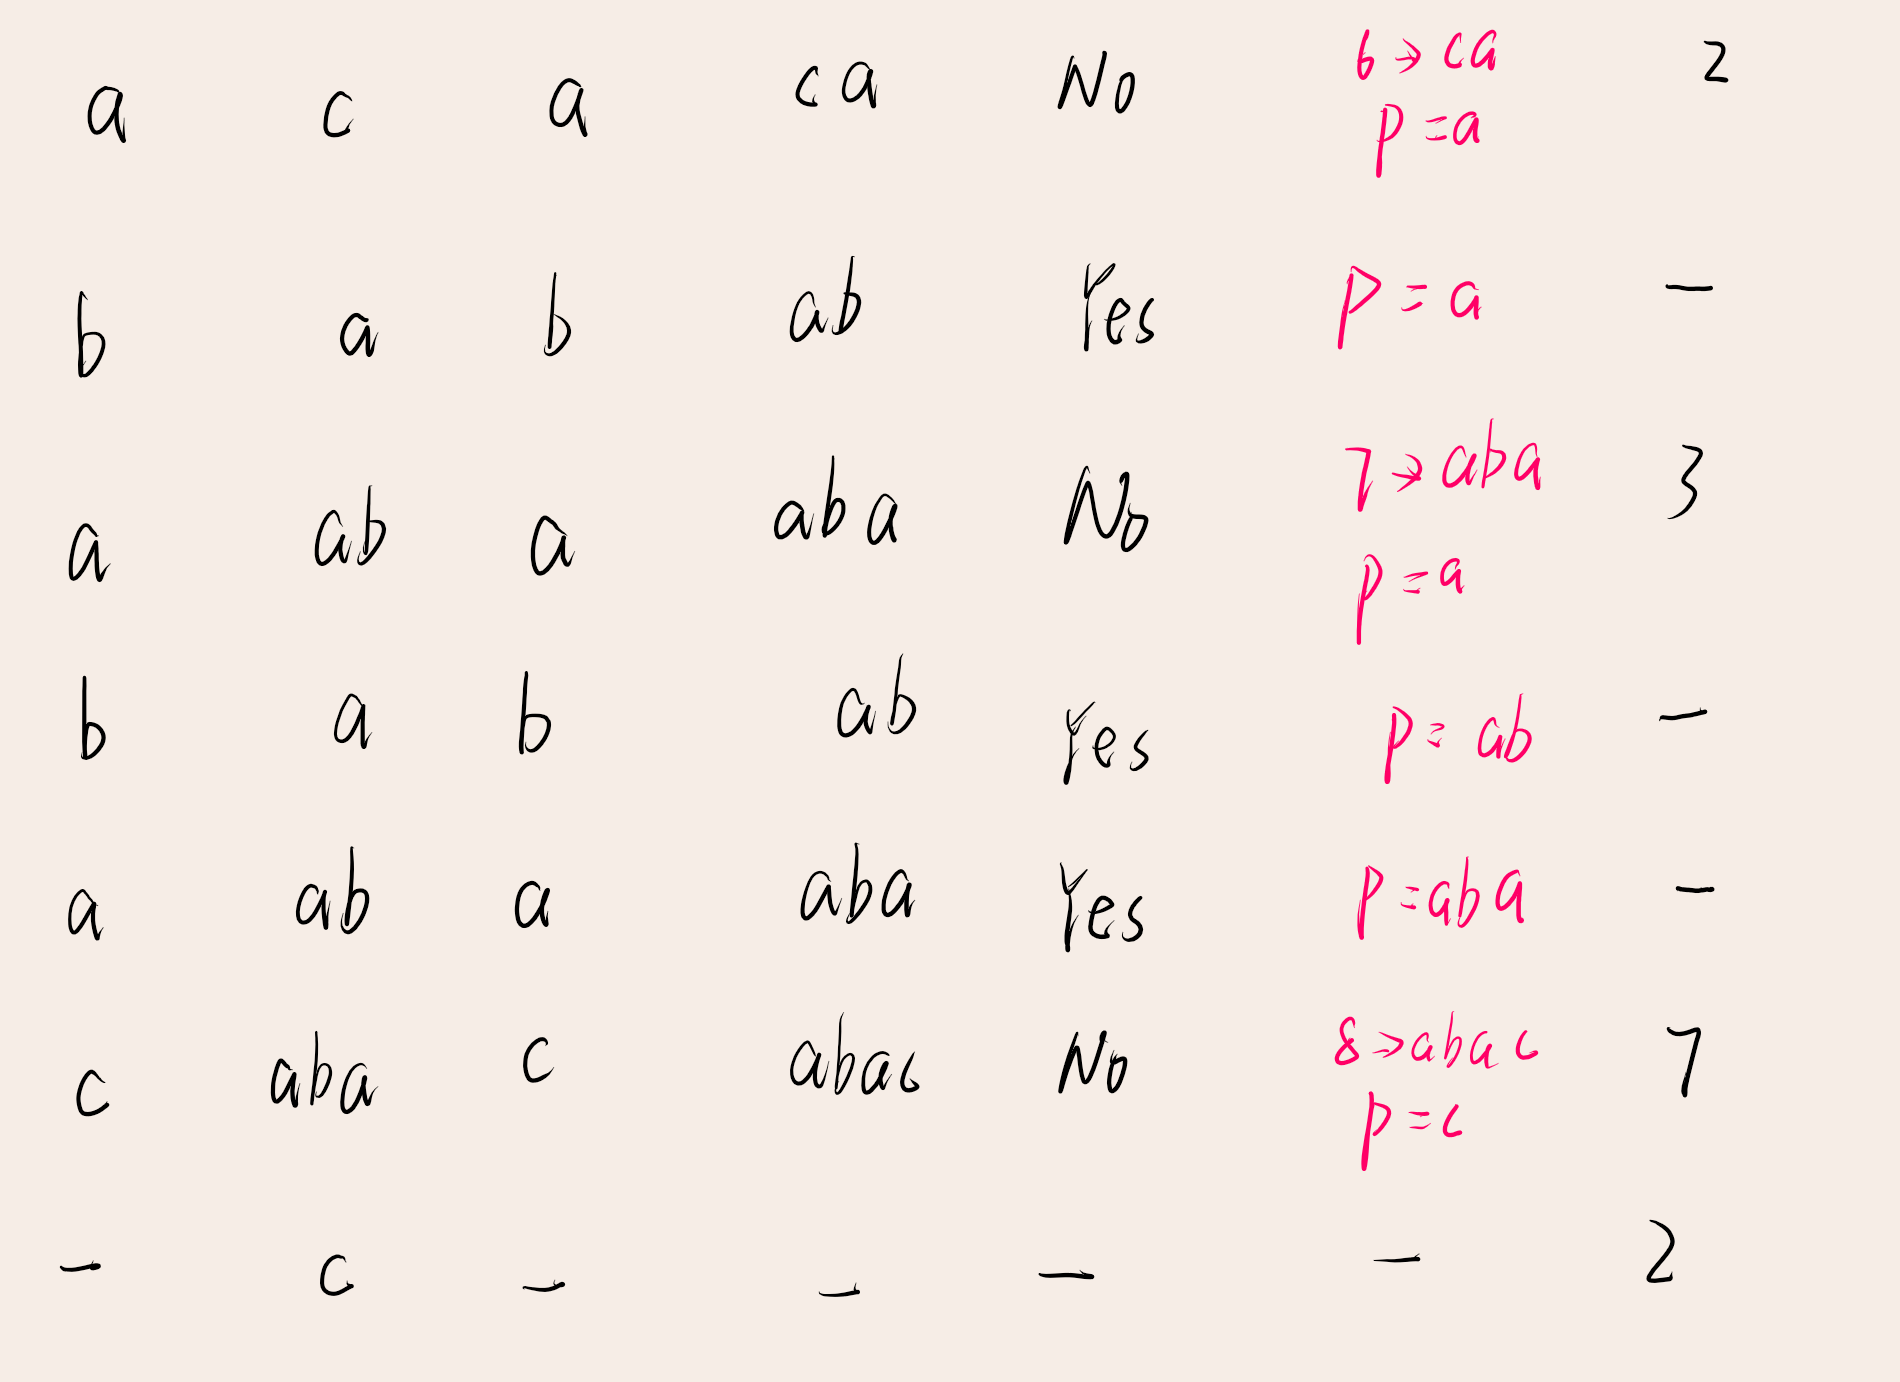 a c a ca No 6 → ca 2
p = a
b a b ab Yes p = a –
a ab a aba No 7 → aba 3
p = a
b a b ab Yes p = ab –
a ab a aba Yes p = aba –
c aba c abac No 8 → abac 7
p = c
– c – – – – 2